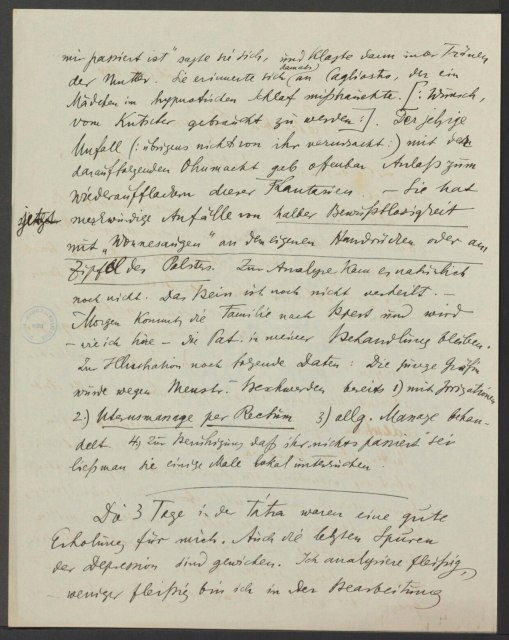 mir passiert ist" sagte sie sich, und klagte dann unter Tränen
der Mutter. Sie erinnerte sich (damals) an Cagliostro, der ein
Mädchen im hypnotischen Schlaf missbrauchte. [: Wunsch,
vom Kutscher gebraucht zu werden :]. Der jetzige
Unfall (: übrigens nicht von ihr verursacht :) mit der
darauffolgenden Ohnmacht gab offenbar Anlaß zum
Wiederaufflackern dieser Phantasien. – Sie hat
jetzt merkwürdige Anfälle von halber Bewußtlosigkeit
mit "Wonnesaugen" an den eigenen Handrücken oder am
Zipfel des Polsters. Zur Analyse kam es natürlich
noch nicht. Das Bein ist noch nicht verheilt. –
Morgen kommt die Familie nach und wird
– wie ich höre – die Pat. in meiner Behandlung bleiben.
Zur Illustration noch folgende Daten: Die junge Gräfin
wurde wegen Menstr.-Beschwerden bereits 1) mit Irrigationen
2.) Uterusmassage per Rectum 3) allg. Massage behan-
delt. 4) Zur Beruhigung daß ihr nichts passiert sei
ließ man sie einige Male lokal untersuchen.
Die 3 Tage in der Tátra waren eine gute
Erholung für mich. Auch die letzten Spuren
der Depression sind gewichen. Ich analysiere fleißig,
weniger fleißig bin ich in der Bearbeitung